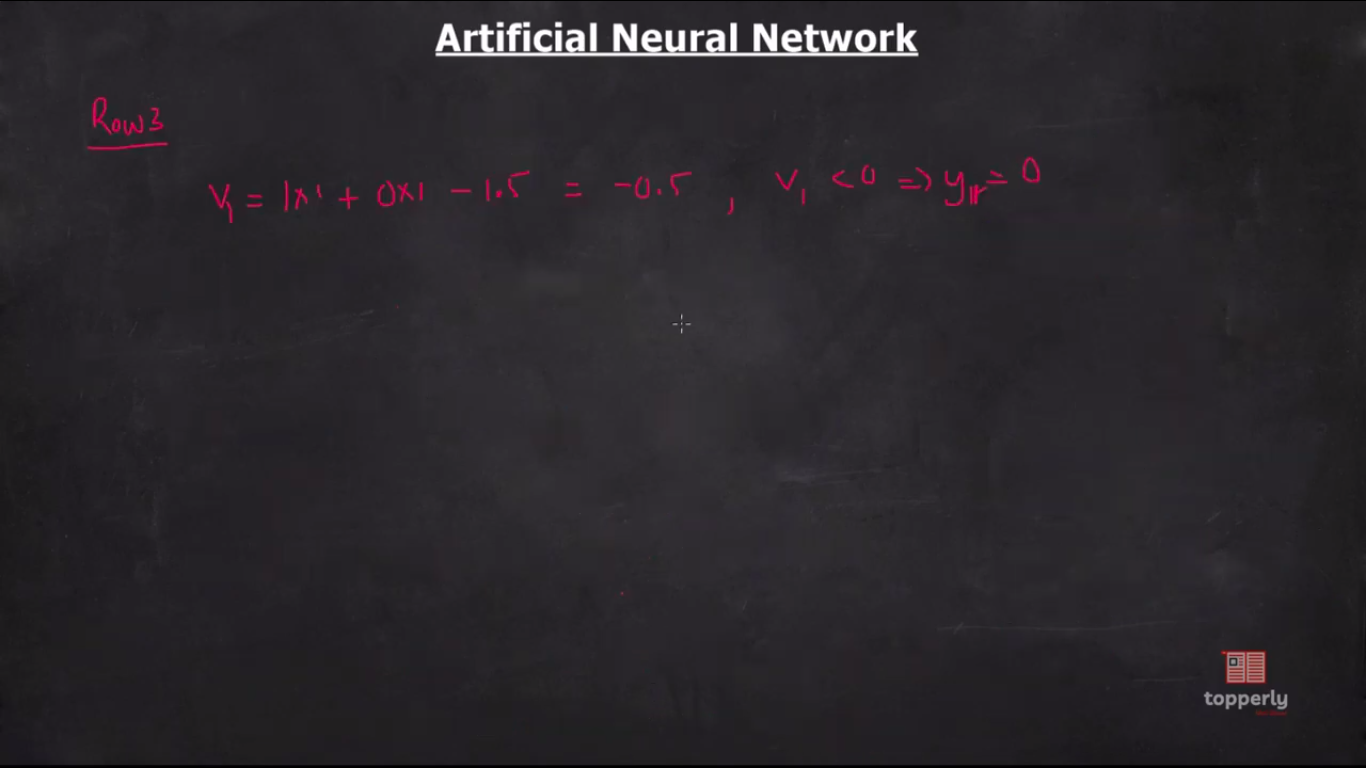 Artificial Neural Network
Row 3
V₁ = 1x1 + 0x1 - 1.5 = -0.5 , V₁ < 0 => y₁r = 0
topperly